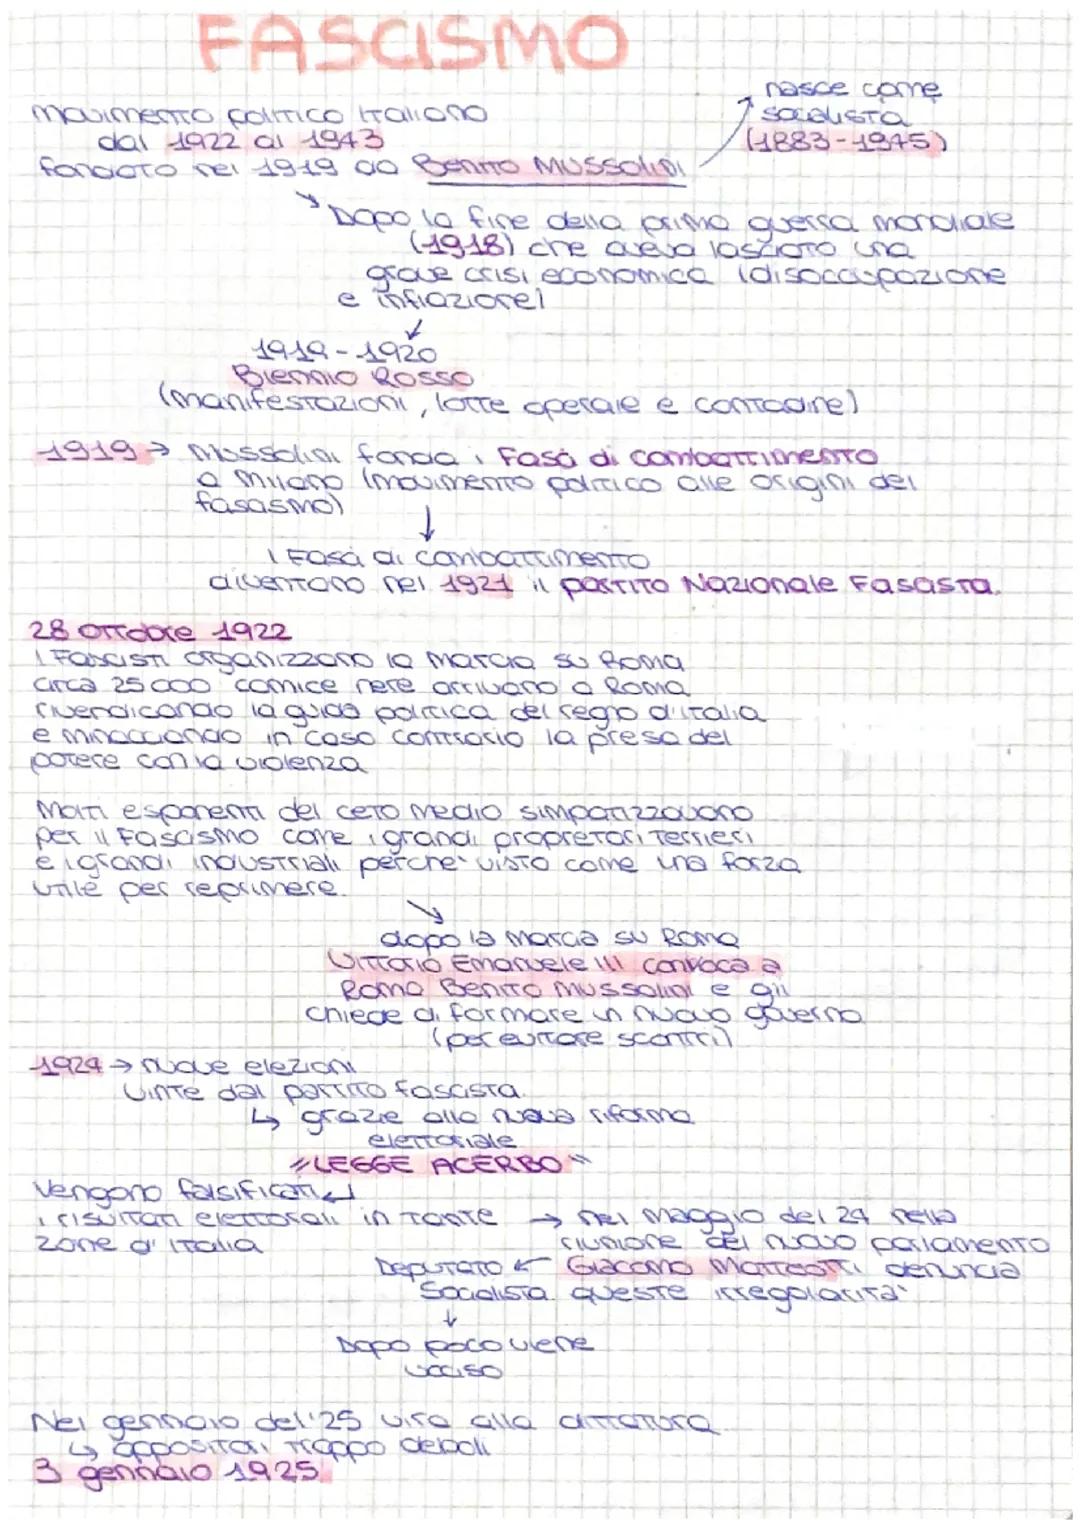 FASCISMO
nasce come
movimento politico italiano
socialista
dal 1922 al 1943
(1883-1945)
fondato nel 1919 da Benito Mussolini
Dopo la fine della prima guerra mondiale
(1918) che aveva lasciato una
grave crisi economica (disoccupazione
e inflazione)
1919-1920
Biennio Rosso
(manifestazioni, lotte operaie e contadine)
1919 → Mussolini fonda i Fasci di combattimento
a Milano (movimento politico alle origini del
fascismo)
↓
I Fasci di combattimento
diventano nel 1921 il partito Nazionale Fascista.
28 ottobre 1922
I Fascisti organizzano la marcia su Roma
circa 25000 camice nere arrivano a Roma
rivendicando la guida politica del regno d'Italia
e minacciando in caso contrario la presa del
potere con la violenza
Molti esponenti del ceto medio simpatizzavano
per il Fascismo come i grandi propretari terrieri
e i grandi industriali perche' visto come una forza
utile per reprimere.
dopo la marcia su Roma
Vittorio Emanuele III convoca a
Roma Benito Mussolini e gli
chiede di formare un nuovo governo
(per evitare scontri)
1924 → nuove elezioni
vinte dal partito fascista.
↳ grazie alla nuova riforma
elettoriale
"LEGGE ACERBO"
Vengono falsificati
i risultati elettorali in tante → nel maggio del 24 nella
zone d'Italia riunione del nuovo parlamento
Deputato ← Giacomo Matteotti denuncia
Socialista queste irregolarita'
↓
Dopo poco viene
ucciso
Nel gennaio del '25 vira alla dittatura
↳ oppositori troppo deboli
3 gennaio 1925